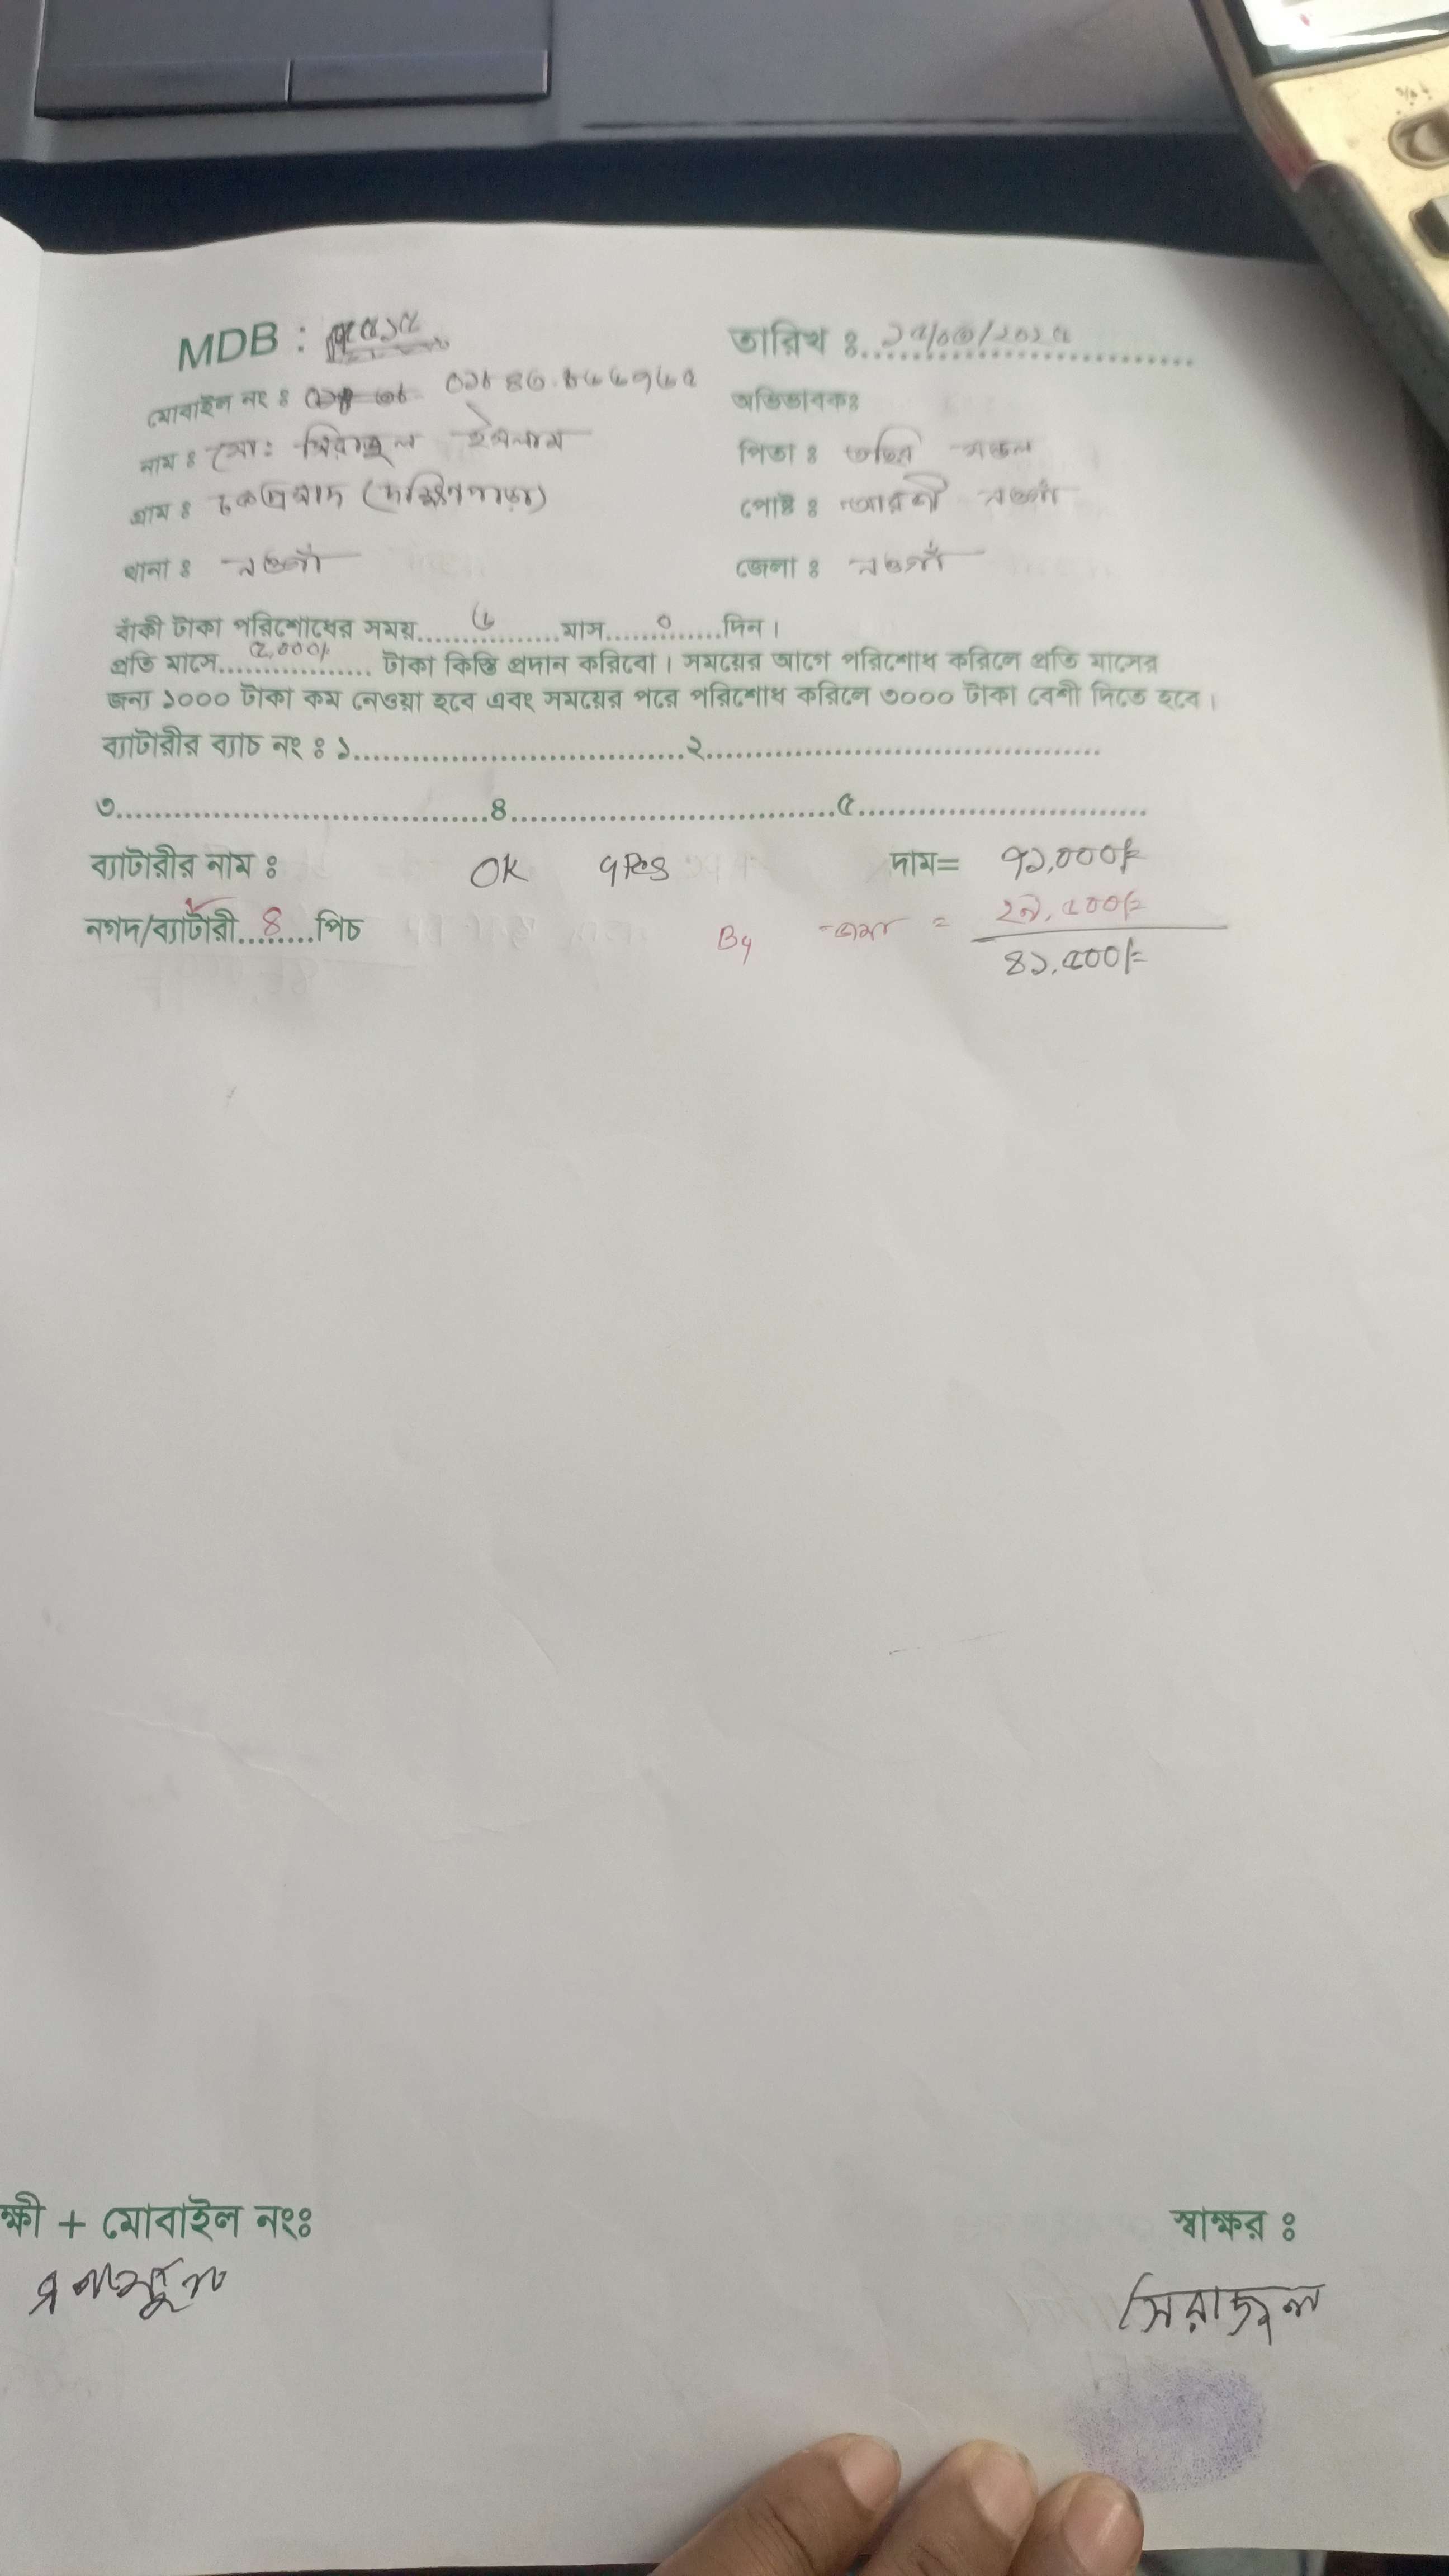 MDB : ৫৫১৫ তারিখ ঃ ১৫/০৩/২০২৫
মোবাইল নং ঃ অভিভাবকঃ
নাম ঃ মোঃ সিরাজুল ইসলাম পিতা ঃ মন্ডল
গ্রাম ঃ (দক্ষিনপাড়া) পোষ্ট ঃ আরজী নওগাঁ
থানা ঃ নওগাঁ জেলা ঃ নওগাঁ
বাঁকী টাকা পরিশোধের সময় ৬ মাস ০ দিন।
প্রতি মাসে ৫,০০০/- টাকা কিস্তি প্রদান করিবো। সময়ের আগে পরিশোধ করিলে প্রতি মাসের
জন্য ১০০০ টাকা কম নেওয়া হবে এবং সময়ের পরে পরিশোধ করিলে ৩০০০ টাকা বেশী দিতে হবে।
ব্যাটারীর ব্যাচ নং ঃ ১ ২
৩ ৪ ৫
ব্যাটারীর নাম ঃ OK 4Pcs দাম= ৭১,০০০/=
নগদ/ব্যাটারী ৪ পিচ By জমা = ২৯,৫০০/=
৪১,৫০০/=
ক্ষী + মোবাইল নংঃ স্বাক্ষর ঃ
সিরাজুল